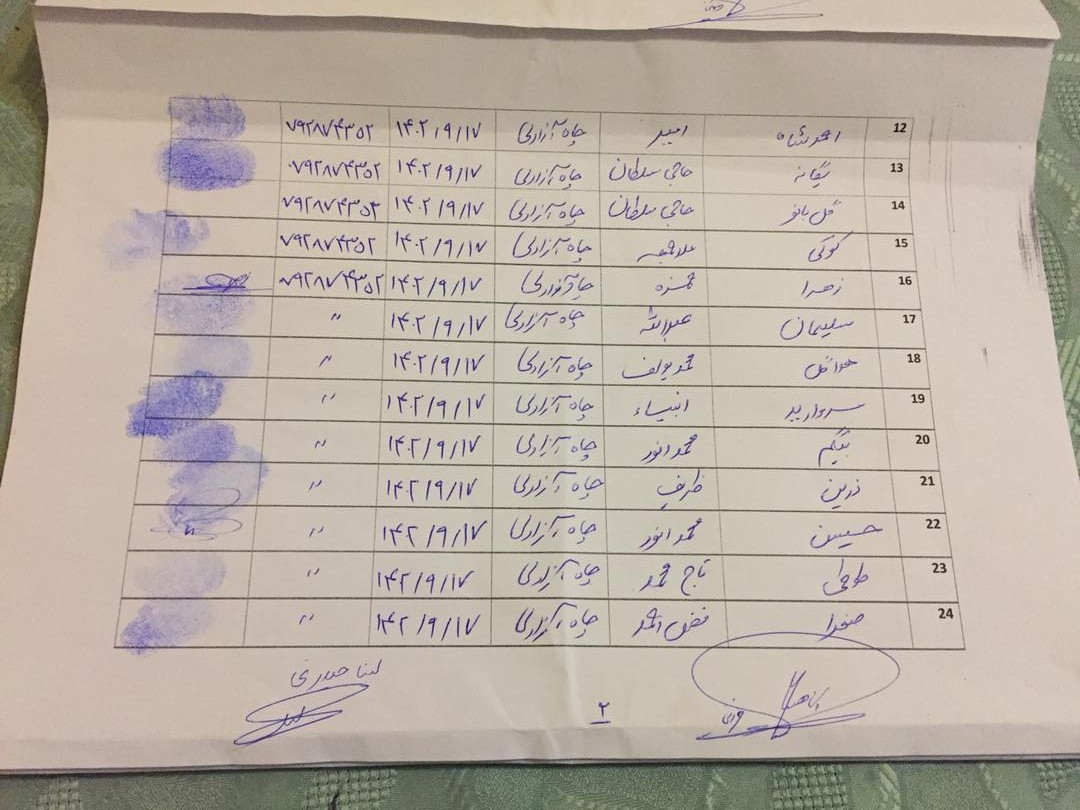 12 احمدشاه امیر چاه آزادی ۱۴۰۲/۹/۱۷ ۰۷۹۲۸۷۴۳۵۲
13 یگانه حاجی سلطان چاه آزادی ۱۴۰۲/۹/۱۷ ۰۷۹۲۸۷۴۳۵۲
14 گل بانو حاجی سلطان چاه آزادی ۱۴۰۲/۹/۱۷ ۰۷۹۲۸۷۴۳۵۲
15 کوکی چاه آزادی ۱۴۰۲/۹/۱۷ ۰۷۹۲۸۷۴۳۵۲
16 زهرا حمزه چاه آزادی ۱۴۰۲/۹/۱۷ ۰۷۹۲۸۷۴۳۵۲
17 سلیمان عبدالله چاه آزادی ۱۴۰۲/۹/۱۷ "
18 هواگل محمد یوسف چاه آزادی ۱۴۰۲/۹/۱۷ "
19 مروارید انبیاء چاه آزادی ۱۴۰۲/۹/۱۷ "
20 بیگم محمد انور چاه آزادی ۱۴۰۲/۹/۱۷ "
21 زرین ظریف چاه آزادی ۱۴۰۲/۹/۱۷ "
22 حسین محمد انور چاه آزادی ۱۴۰۲/۹/۱۷ "
23 طوطی تاج محمد چاه آزادی ۱۴۰۲/۹/۱۷ "
24 صغرا فضل احمد چاه آزادی ۱۴۰۲/۹/۱۷ "
لینا حیدری
۲